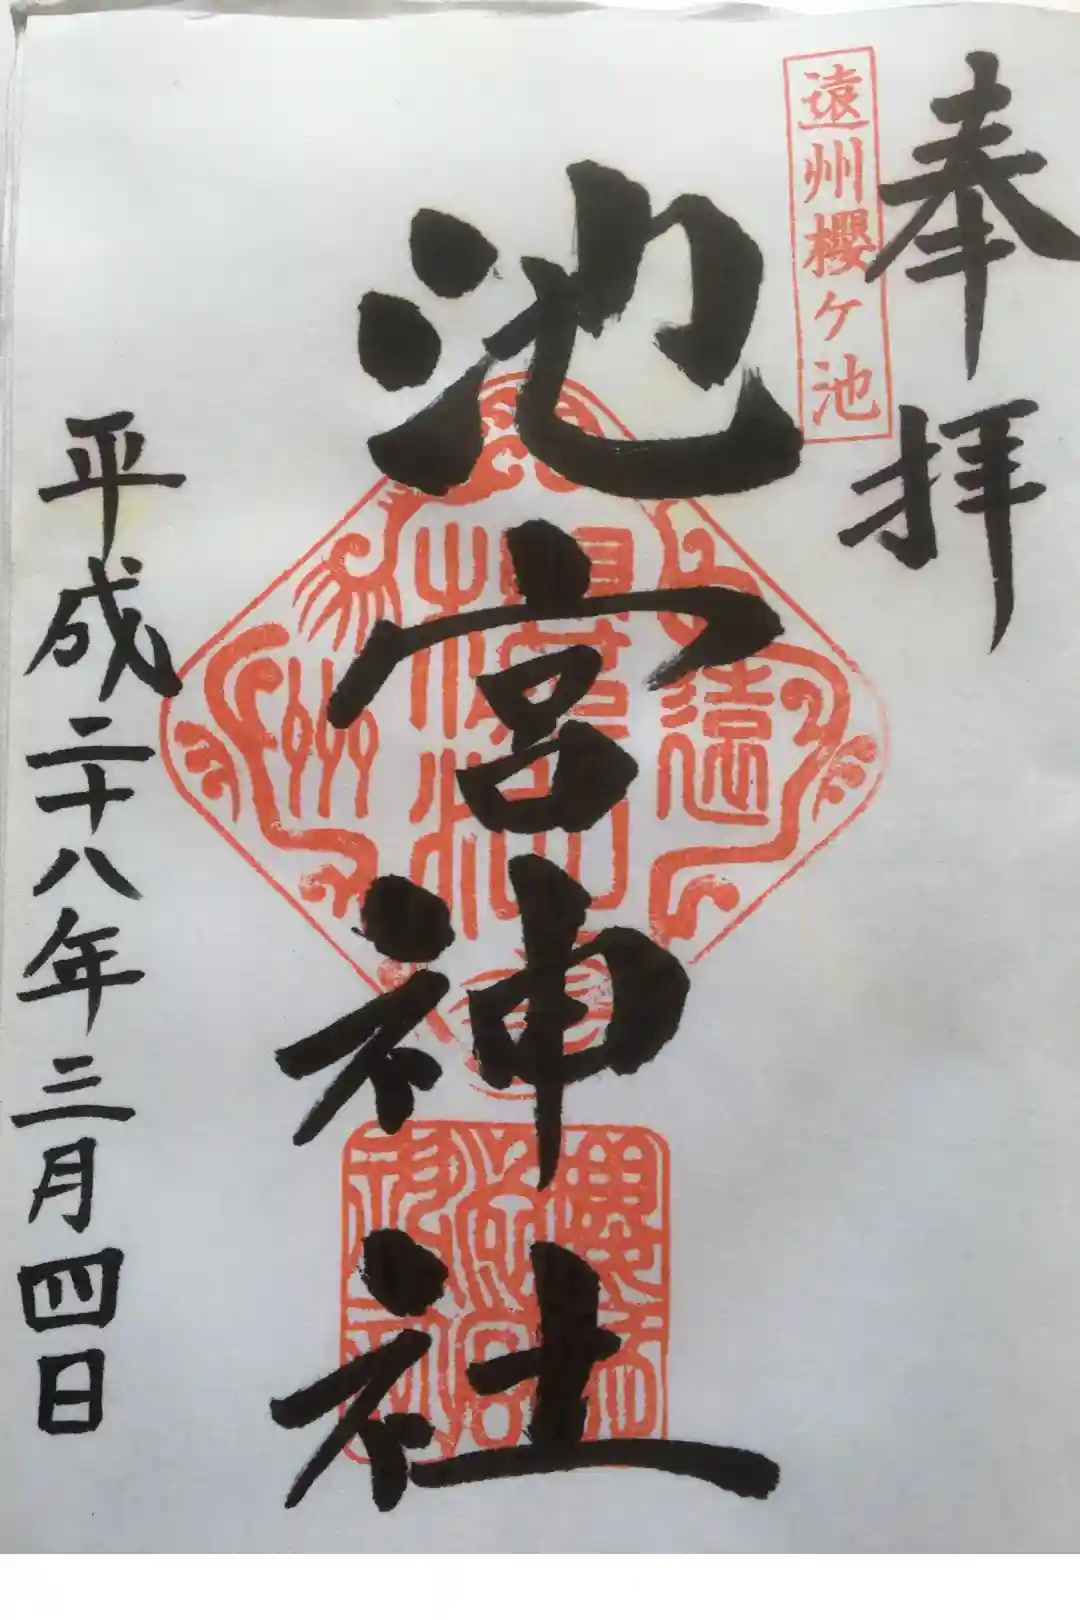 奉拝
遠州櫻ケ池
池宮神社
平成二十八年三月四日